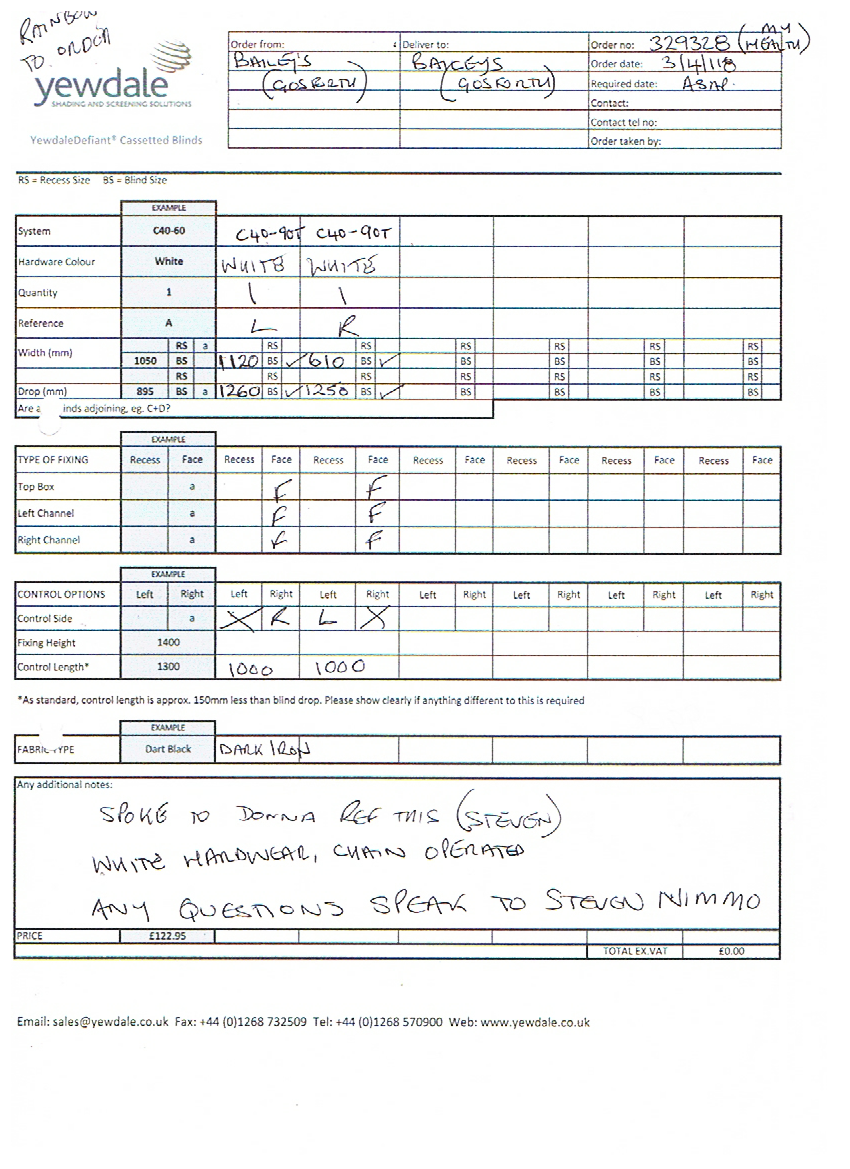 RAINBOW
TO ORDER
yewdale
SHADING AND SCREENING SOLUTIONS
YewdaleDefiant® Cassetted Blinds
Order from: Deliver to: Order no: 329328 (MY HEALTH)
BAILEY'S BAILEYS Order date: 3/4/118
(GOSFORTH) (GOSFORTH) Required date: ASAP.
Contact:
Contact tel no:
Order taken by:
RS = Recess Size BS = Blind Size
EXAMPLE
System C40-60 C40-90T C40-90T
Hardware Colour White WHITE WHITE
Quantity 1 1 1
Reference A L R
RS a RS RS RS RS RS RS
Width (mm) 1050 BS 1120 BS ✓ 610 BS ✓ BS BS BS BS
RS RS RS RS RS RS RS
Drop (mm) 895 BS a 1260 BS ✓ 1250 BS ✓ BS BS BS BS
Are a nds adjoining, eg. C+D?
EXAMPLE
TYPE OF FIXING Recess Face Recess Face Recess Face Recess Face Recess Face Recess Face Recess Face
Top Box a F F
Left Channel a F F
Right Channel a F F
EXAMPLE
CONTROL OPTIONS Left Right Left Right Left Right Left Right Left Right Left Right Left Right
Control Side a X R L X
Fixing Height 1400
Control Length* 1300 1000 1000
*As standard, control length is approx. 150mm less than blind drop. Please show clearly if anything different to this is required
EXAMPLE
FABRIC TYPE Dart Black DARK IRON
Any additional notes:
SPOKE TO DONNA REF THIS (STEVEN)
WHITE HARDWEAR, CHAIN OPERATED
ANY QUESTIONS SPEAK TO STEVEN NIMMO
PRICE £122.95
TOTAL EX.VAT £0.00
Email: sales@yewdale.co.uk Fax: +44 (0)1268 732509 Tel: +44 (0)1268 570900 Web: www.yewdale.co.uk